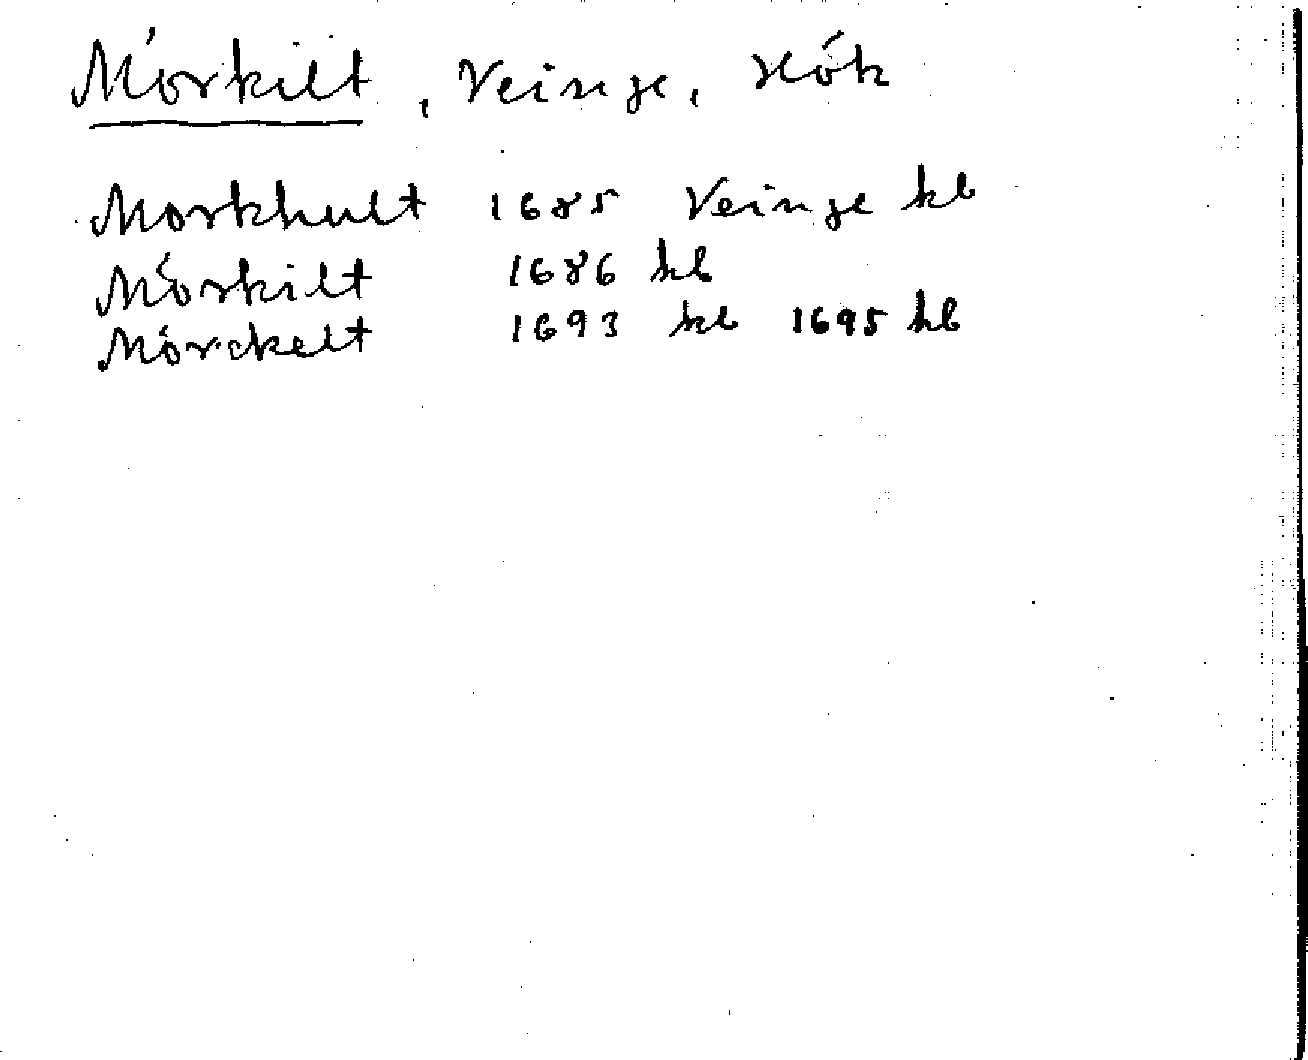 Mórkilt, Veinge, Hók
Morkhult 1685 Veinge kb
Mórkilt 1686 kb
Mórckelt 1693 kb 1695 kb